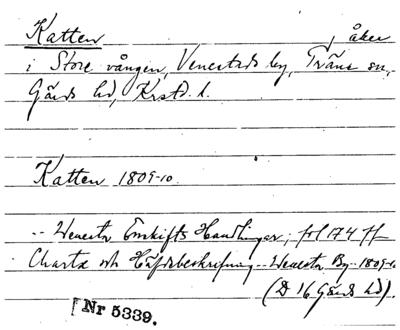 Katten, åker
i Store vången, Venestads by, Träne sn,
Gärds hd, Krstd. l.
Katten 1809-10.
-- Wenesta Enskifts Handlingar, fol 174 ff
Charta och Häfdebeskrifning -- Wenesta By -- 1809-10
(D 16 Gärds hd).
[Nr 5339.